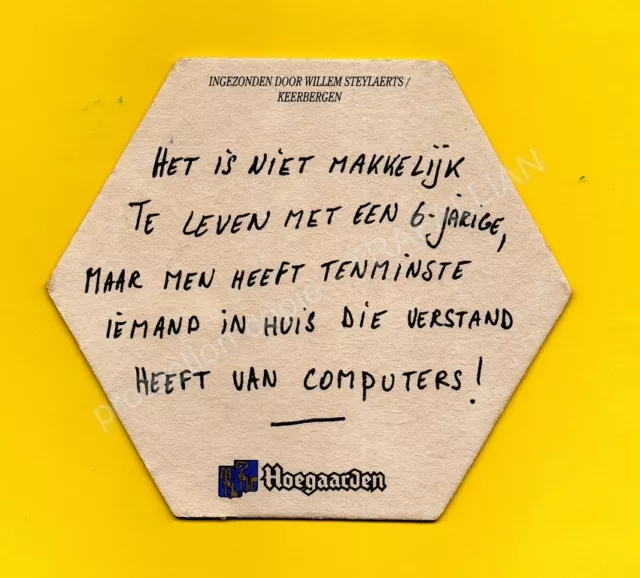 INGEZONDEN DOOR WILLEM STEYLAERTS /
KEERBERGEN
HET IS NIET MAKKELIJK
TE LEVEN MET EEN 6-JARIGE,
MAAR MEN HEEFT TENMINSTE
IEMAND IN HUIS DIE VERSTAND
HEEFT VAN COMPUTERS!
Hoegaarden